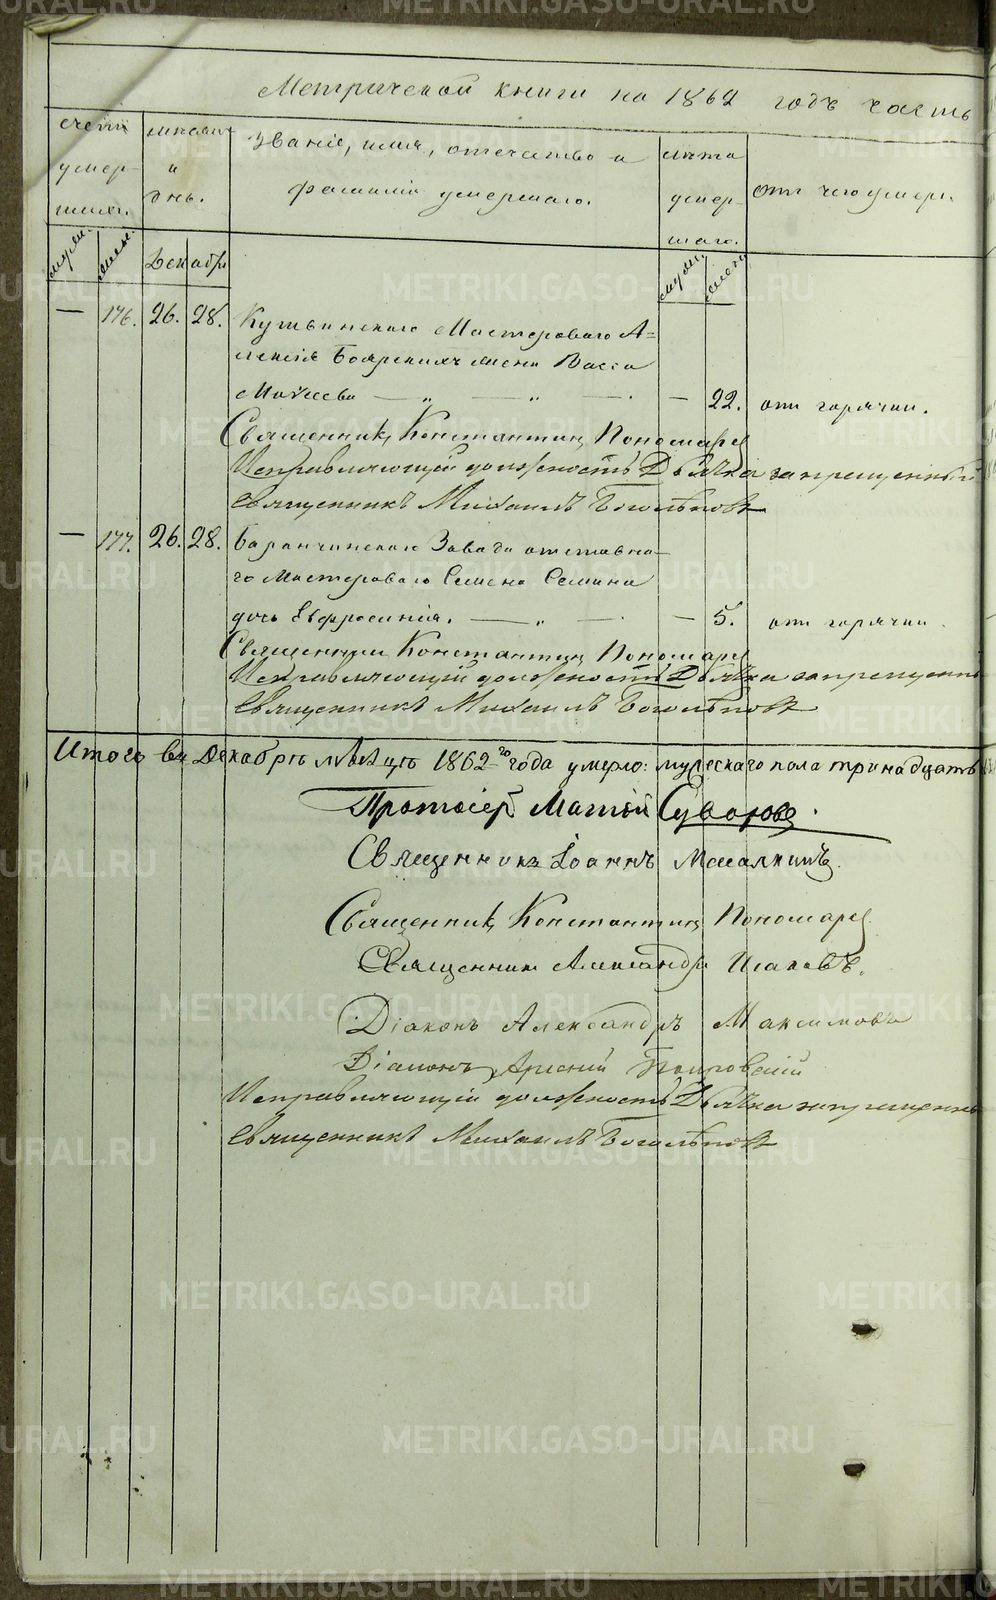 Метрической книги на 1862 годъ часть
счетъ умер-шихъ.
мѣсяцъ и день.
Званіе, имя, отчество и фамилія умершаго.
лѣта умер-шаго.
отъ чего умеръ.
муж. жен. Декабрь муж. жен.
— 176. 26. 28. Кушвинскаго Мастероваго А=
лексія Бояркина жена Васса
Моисеева — „ — „ — — 22. отъ горячки.
Священникъ Константинъ Пономаревъ
Исправляющій должность Дьячка запрещенный
священникъ Михаилъ Боголѣповъ
— 177. 26. 28. Баранчинскаго Завода отставна-
го Мастероваго Семена Семина
дочь Евфросинія. — „ — — 5. отъ горячки.
Священникъ Константинъ Пономаревъ
Исправляющій должность Дьячка запрещенный
Священникъ Михаилъ Боголѣповъ
Итого въ Декабрѣ мѣсяцѣ 1862го года умерло: мужескаго пола тринадцать
Протоіерей Матѳій Суворовъ.
Священникъ Іоаннъ
Священникъ Константинъ Пономаревъ
Священникъ Александръ
Діаконъ Александръ Максимовъ
Діаконъ Арсеній
Исправляющій должность Дьячка запрещенный
священникъ Михаилъ Боголѣповъ
METRIKI.GASO-URAL.RU